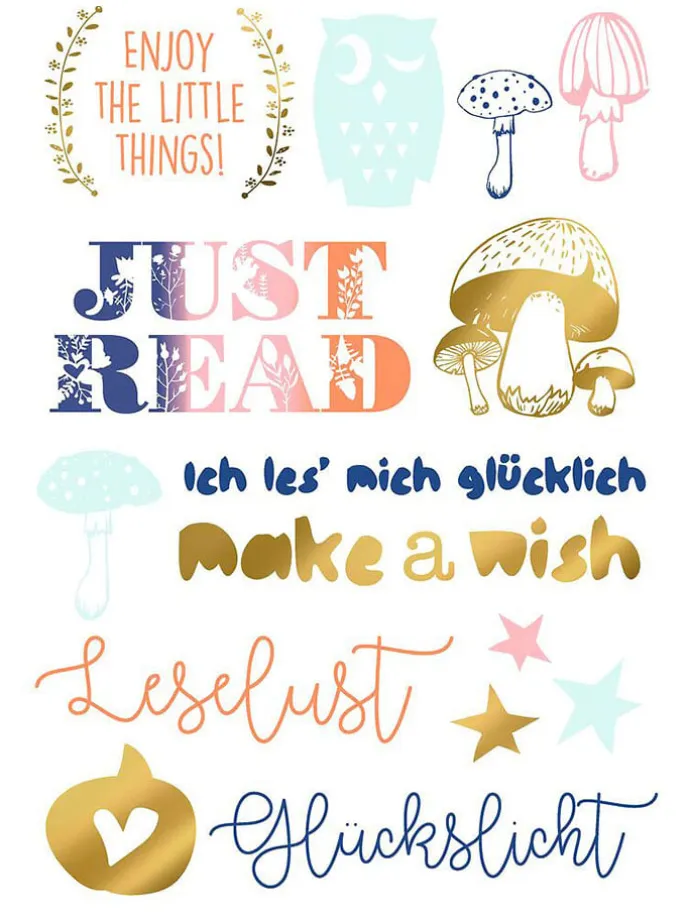 ENJOY
THE LITTLE
THINGS!
JUST
READ
Ich les' mich glücklich
make a wish
Leselust
Glückslicht